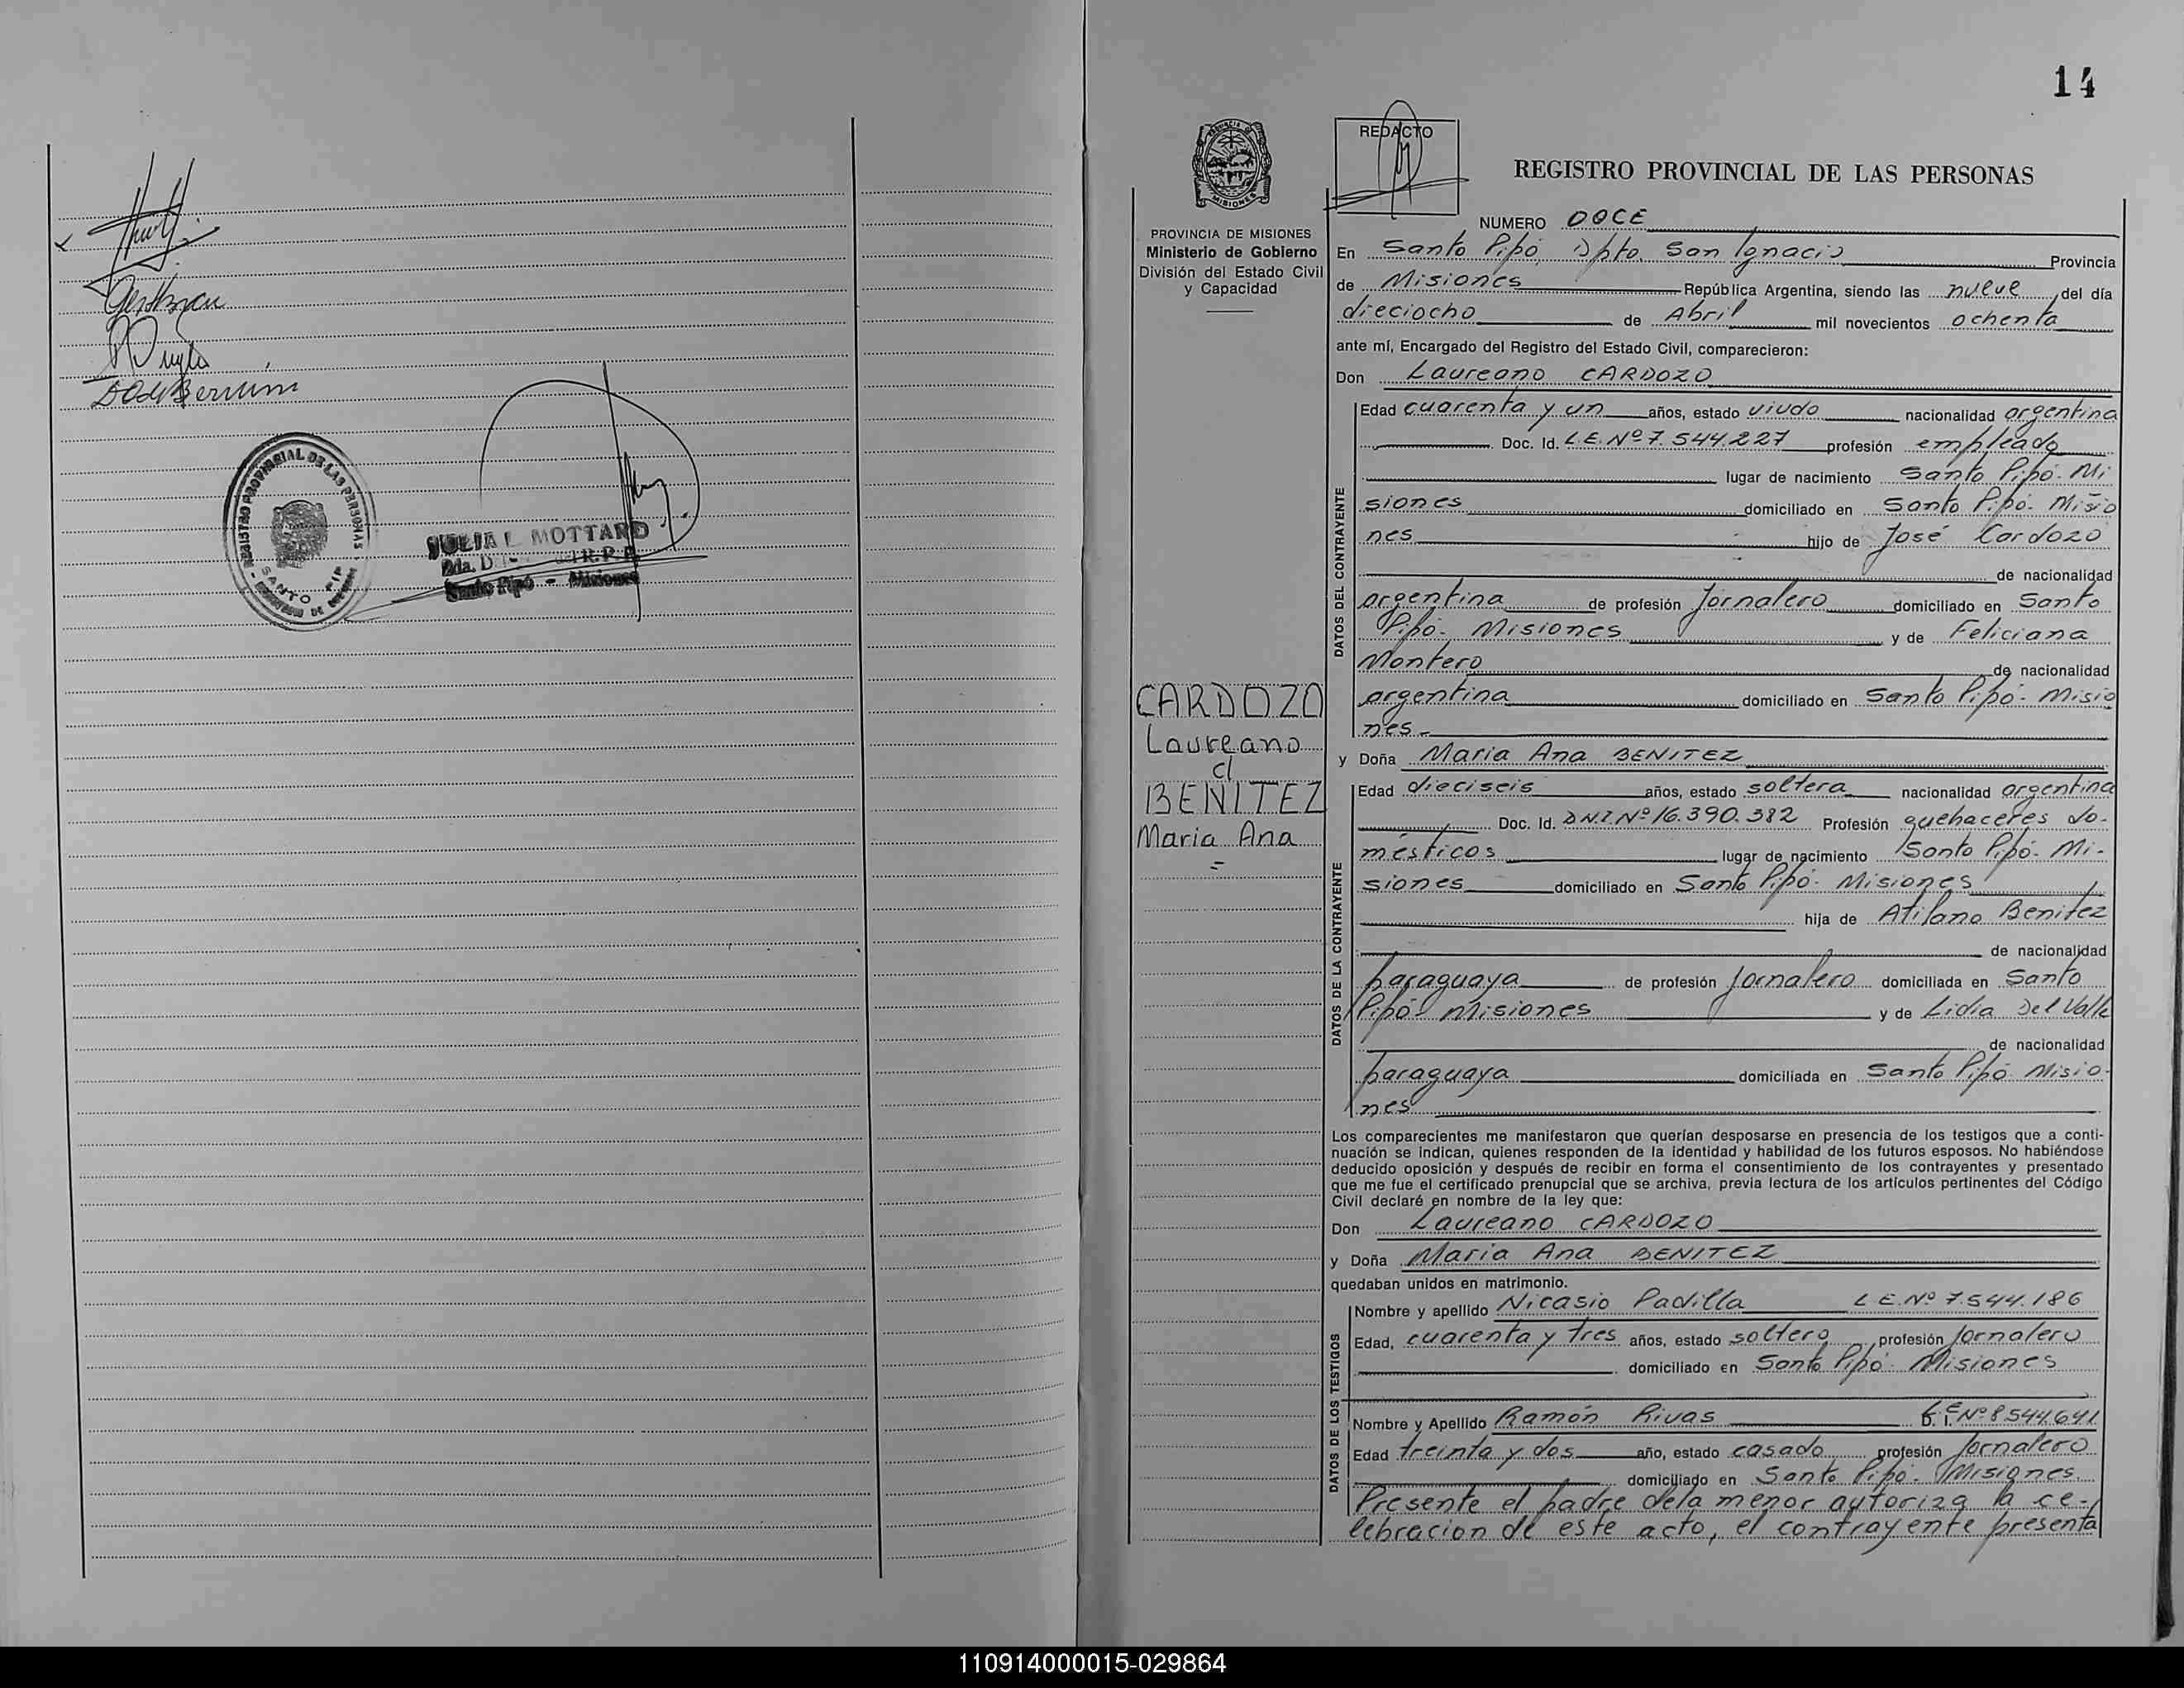 REGISTRO PROVINCIAL DE LAS PERSONAS
SANTO PIP
JULIA L. MOTTARD
2da.
Santo Pipó - Misiones
14
PROVINCIA DE MISIONES
Ministerio de Gobierno
División del Estado Civil
y Capacidad
CARDOZO
Laureano
c/
BENITEZ
Maria Ana
=
REDACTO
REGISTRO PROVINCIAL DE LAS PERSONAS
NUMERO DOCE
En Santo Pipó, Dpto. San Ignacio Provincia
de Misiones República Argentina, siendo las nueve del día
dieciocho de Abril mil novecientos ochenta
ante mí, Encargado del Registro del Estado Civil, comparecieron:
Don Laureano CARDOZO
DATOS DEL CONTRAYENTE
Edad cuarenta y un años, estado viudo nacionalidad argentina
Doc. Id. L.E. Nº 7.544.227 profesión empleado
lugar de nacimiento Santo Pipó. Mi
siones domiciliado en Santo Pipó. Misio
nes hijo de José Cardozo
de nacionalidad
argentina de profesión Jornalero domiciliado en Santo
Pipó. Misiones y de Feliciana
Montero de nacionalidad
argentina domiciliado en Santo Pipó. Misio
nes.
y Doña Maria Ana BENITEZ
DATOS DE LA CONTRAYENTE
Edad dieciseis años, estado soltera nacionalidad argentina
Doc. Id. DNI. Nº 16.390.382 Profesión quehaceres do-
mésticos lugar de nacimiento Santo Pipó. Mi-
siones domiciliado en Santo Pipó. Misiones
hija de Atilano Benitez
de nacionalidad
paraguaya de profesión Jornalero domiciliada en Santo
Pipó. Misiones y de Lidia Del Valle
de nacionalidad
paraguaya domiciliada en Santo Pipó. Misio-
nes
Los comparecientes me manifestaron que querían desposarse en presencia de los testigos que a conti-
nuación se indican, quienes responden de la identidad y habilidad de los futuros esposos. No habiéndose
deducido oposición y después de recibir en forma el consentimiento de los contrayentes y presentado
que me fue el certificado prenupcial que se archiva, previa lectura de los artículos pertinentes del Código
Civil declaré en nombre de la ley que:
Don Laureano CARDOZO
y Doña Maria Ana BENITEZ
quedaban unidos en matrimonio.
DATOS DE LOS TESTIGOS
Nombre y apellido Nicasio Padilla L.E. Nº 7.544.186
Edad, cuarenta y tres años, estado soltero profesión Jornalero
domiciliado en Santo Pipó. Misiones
Nombre y Apellido Ramón Rivas Nº 8.544.641
Edad treinta y dos año, estado casado profesión Jornalero
domiciliado en Santo Pipó. Misiones.
Presente el padre de la menor autoriza la ce-
lebracion de este acto, el contrayente presenta
110914000015-029864